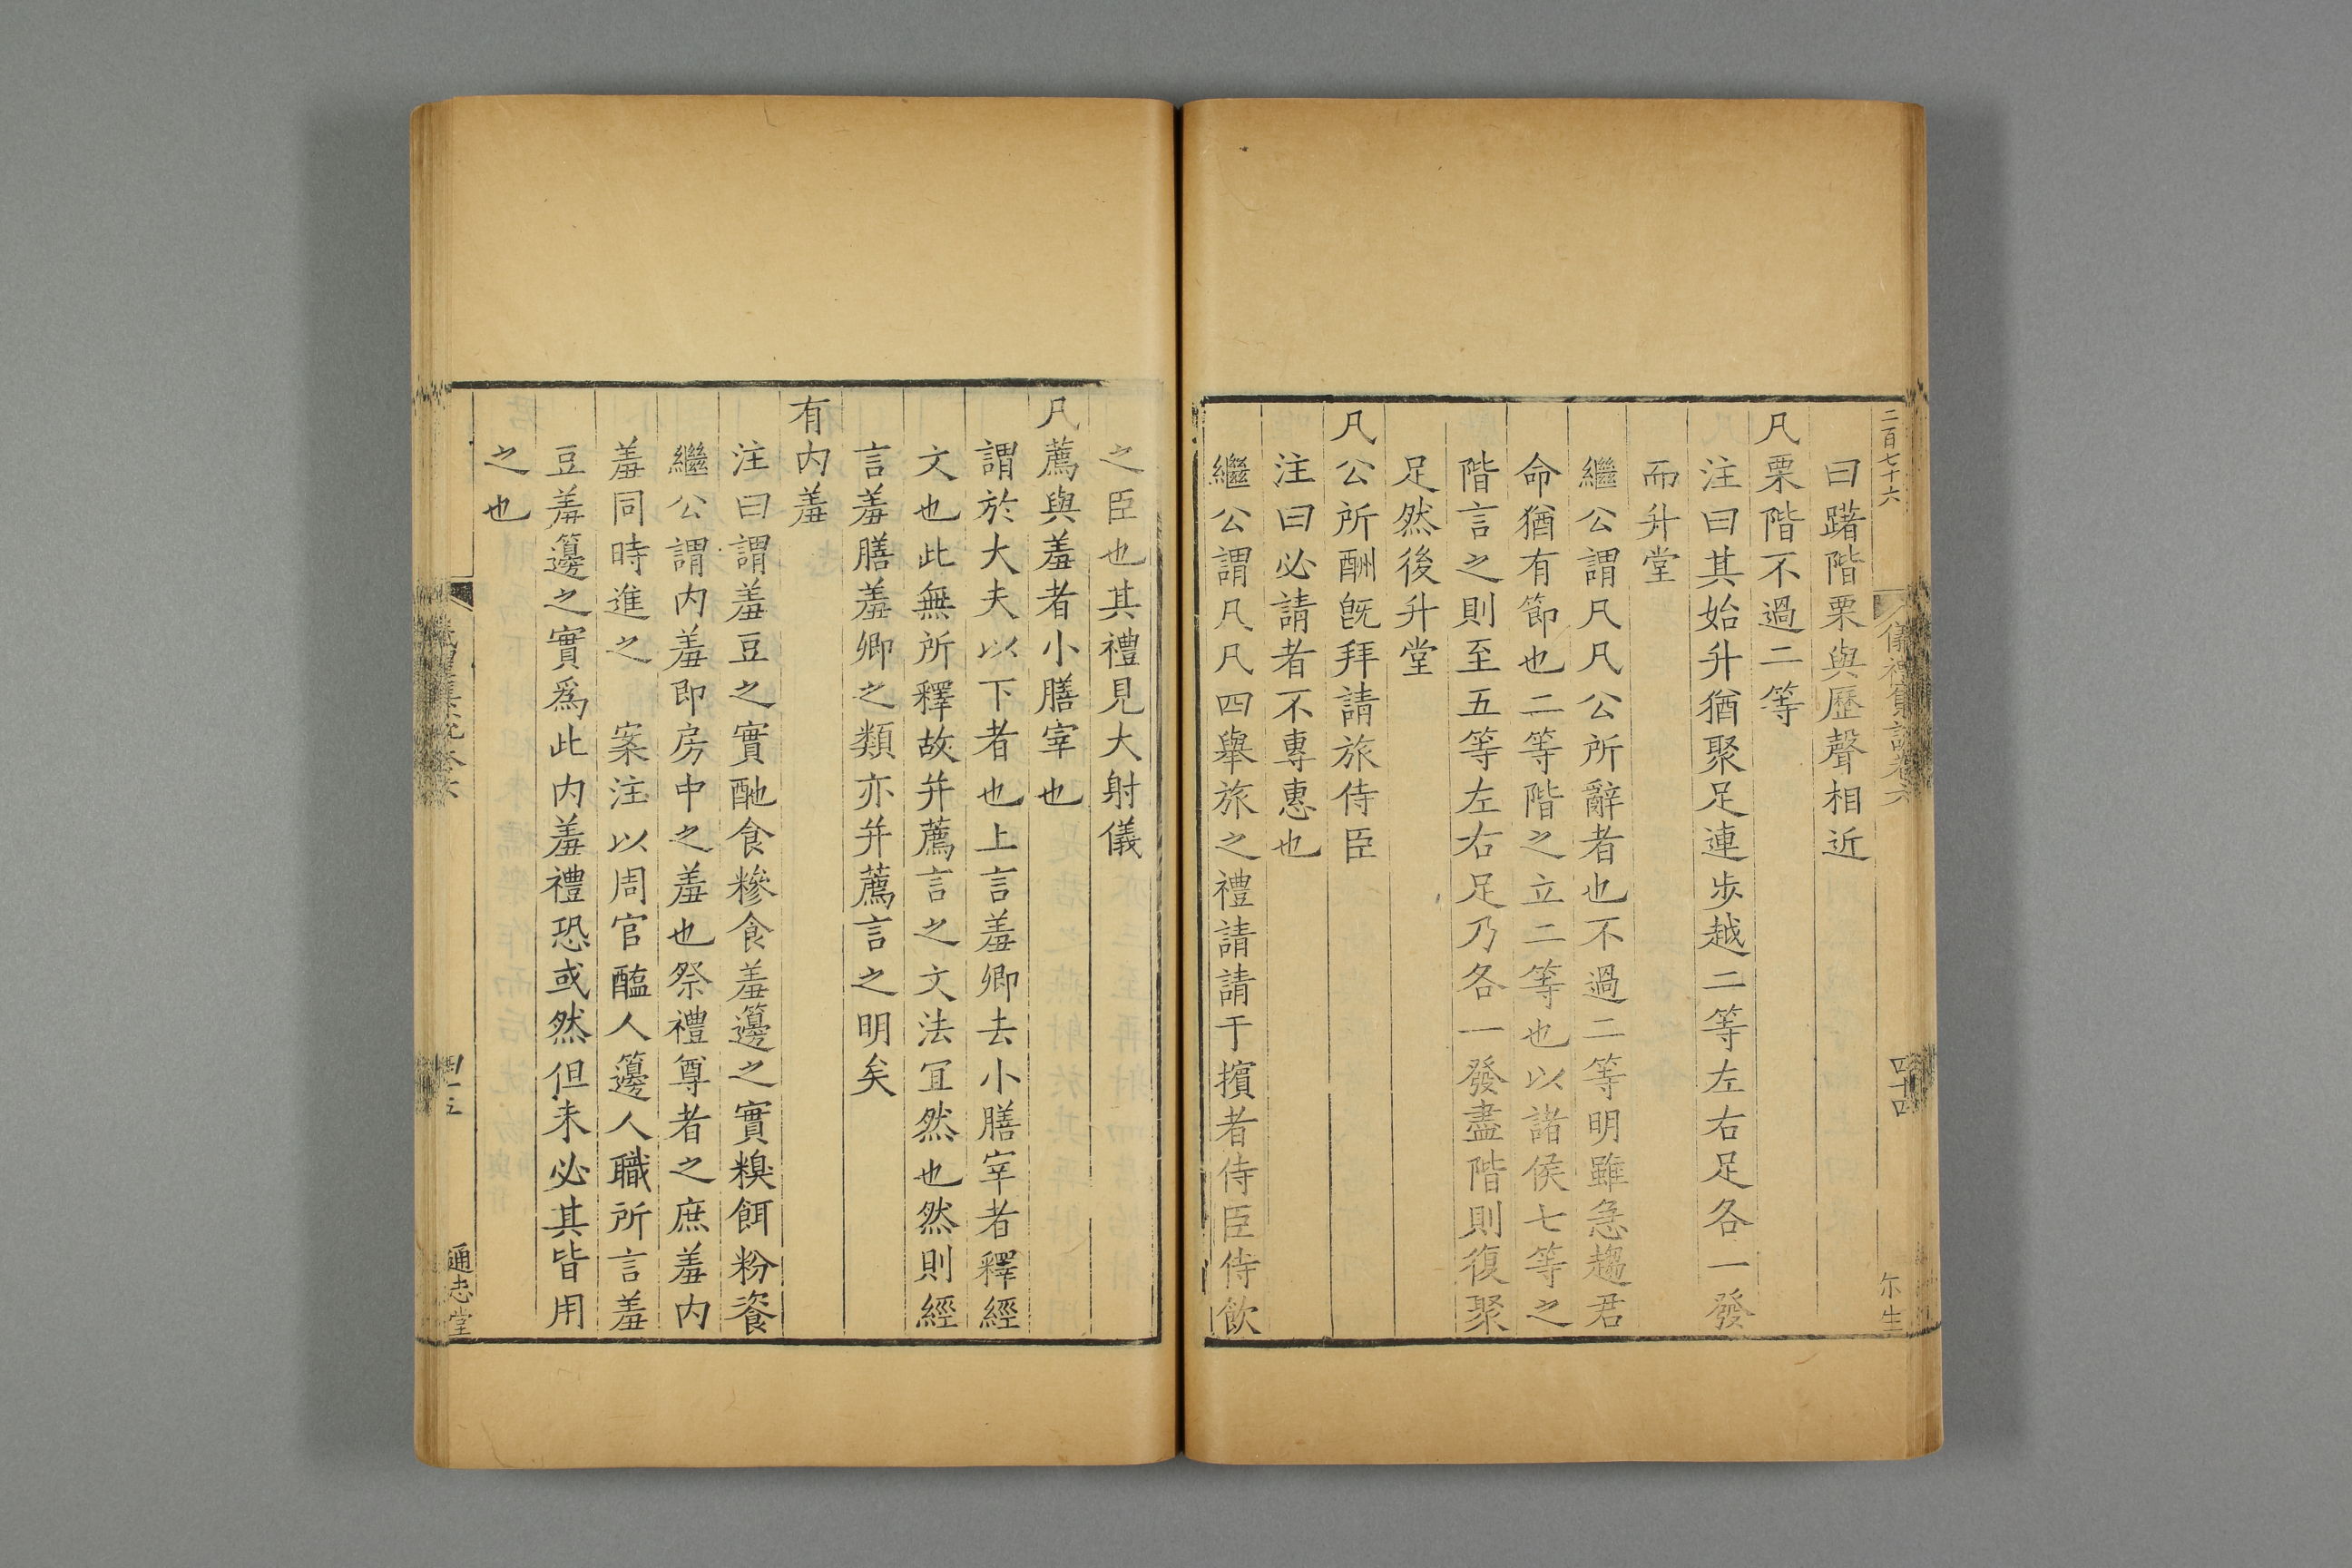 二百七十六
曰躇階栗與歷聲相近
凡栗階不過二等
注曰其始升猶聚足連步越二等左右足各一發
而升堂
繼公謂凡凡公所辭者也不過二等明雖急趨君
命猶有節也二等階之立二等也以諸侯七等之
階言之則至五等左右足乃各一發盡階則復聚
足然後升堂
凡公所酬旣拜請旅侍臣
注曰必請者不專惠也
繼公謂凡凡四舉旅之禮請請于擯者侍臣侍飲
四十四
尓生
之臣也其禮見大射儀
凡薦與羞者小膳宰也
謂於大夫以下者也上言羞卿去小膳宰者釋經
文也此無所釋故并薦言之文法冝然也然則經
言羞膳羞卿之類亦并薦言之明矣
有内羞
注曰謂羞豆之實酏食糝食羞籩之實糗餌粉餈
繼公謂内羞即房中之羞也祭禮尊者之庶羞内
羞同時進之 案注以周官醢人籩人職所言羞
豆羞籩之實爲此内羞禮恐或然但未必其皆用
之也
通志堂